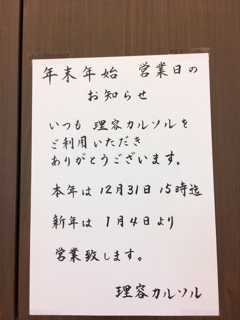 年末年始 営業日の
お知らせ
いつも 理容カルソルを
ご利用いただき
ありがとうございます。
本年は 12月31日 15時迄
新年は 1月4日より
営業致します。
理容カルソル